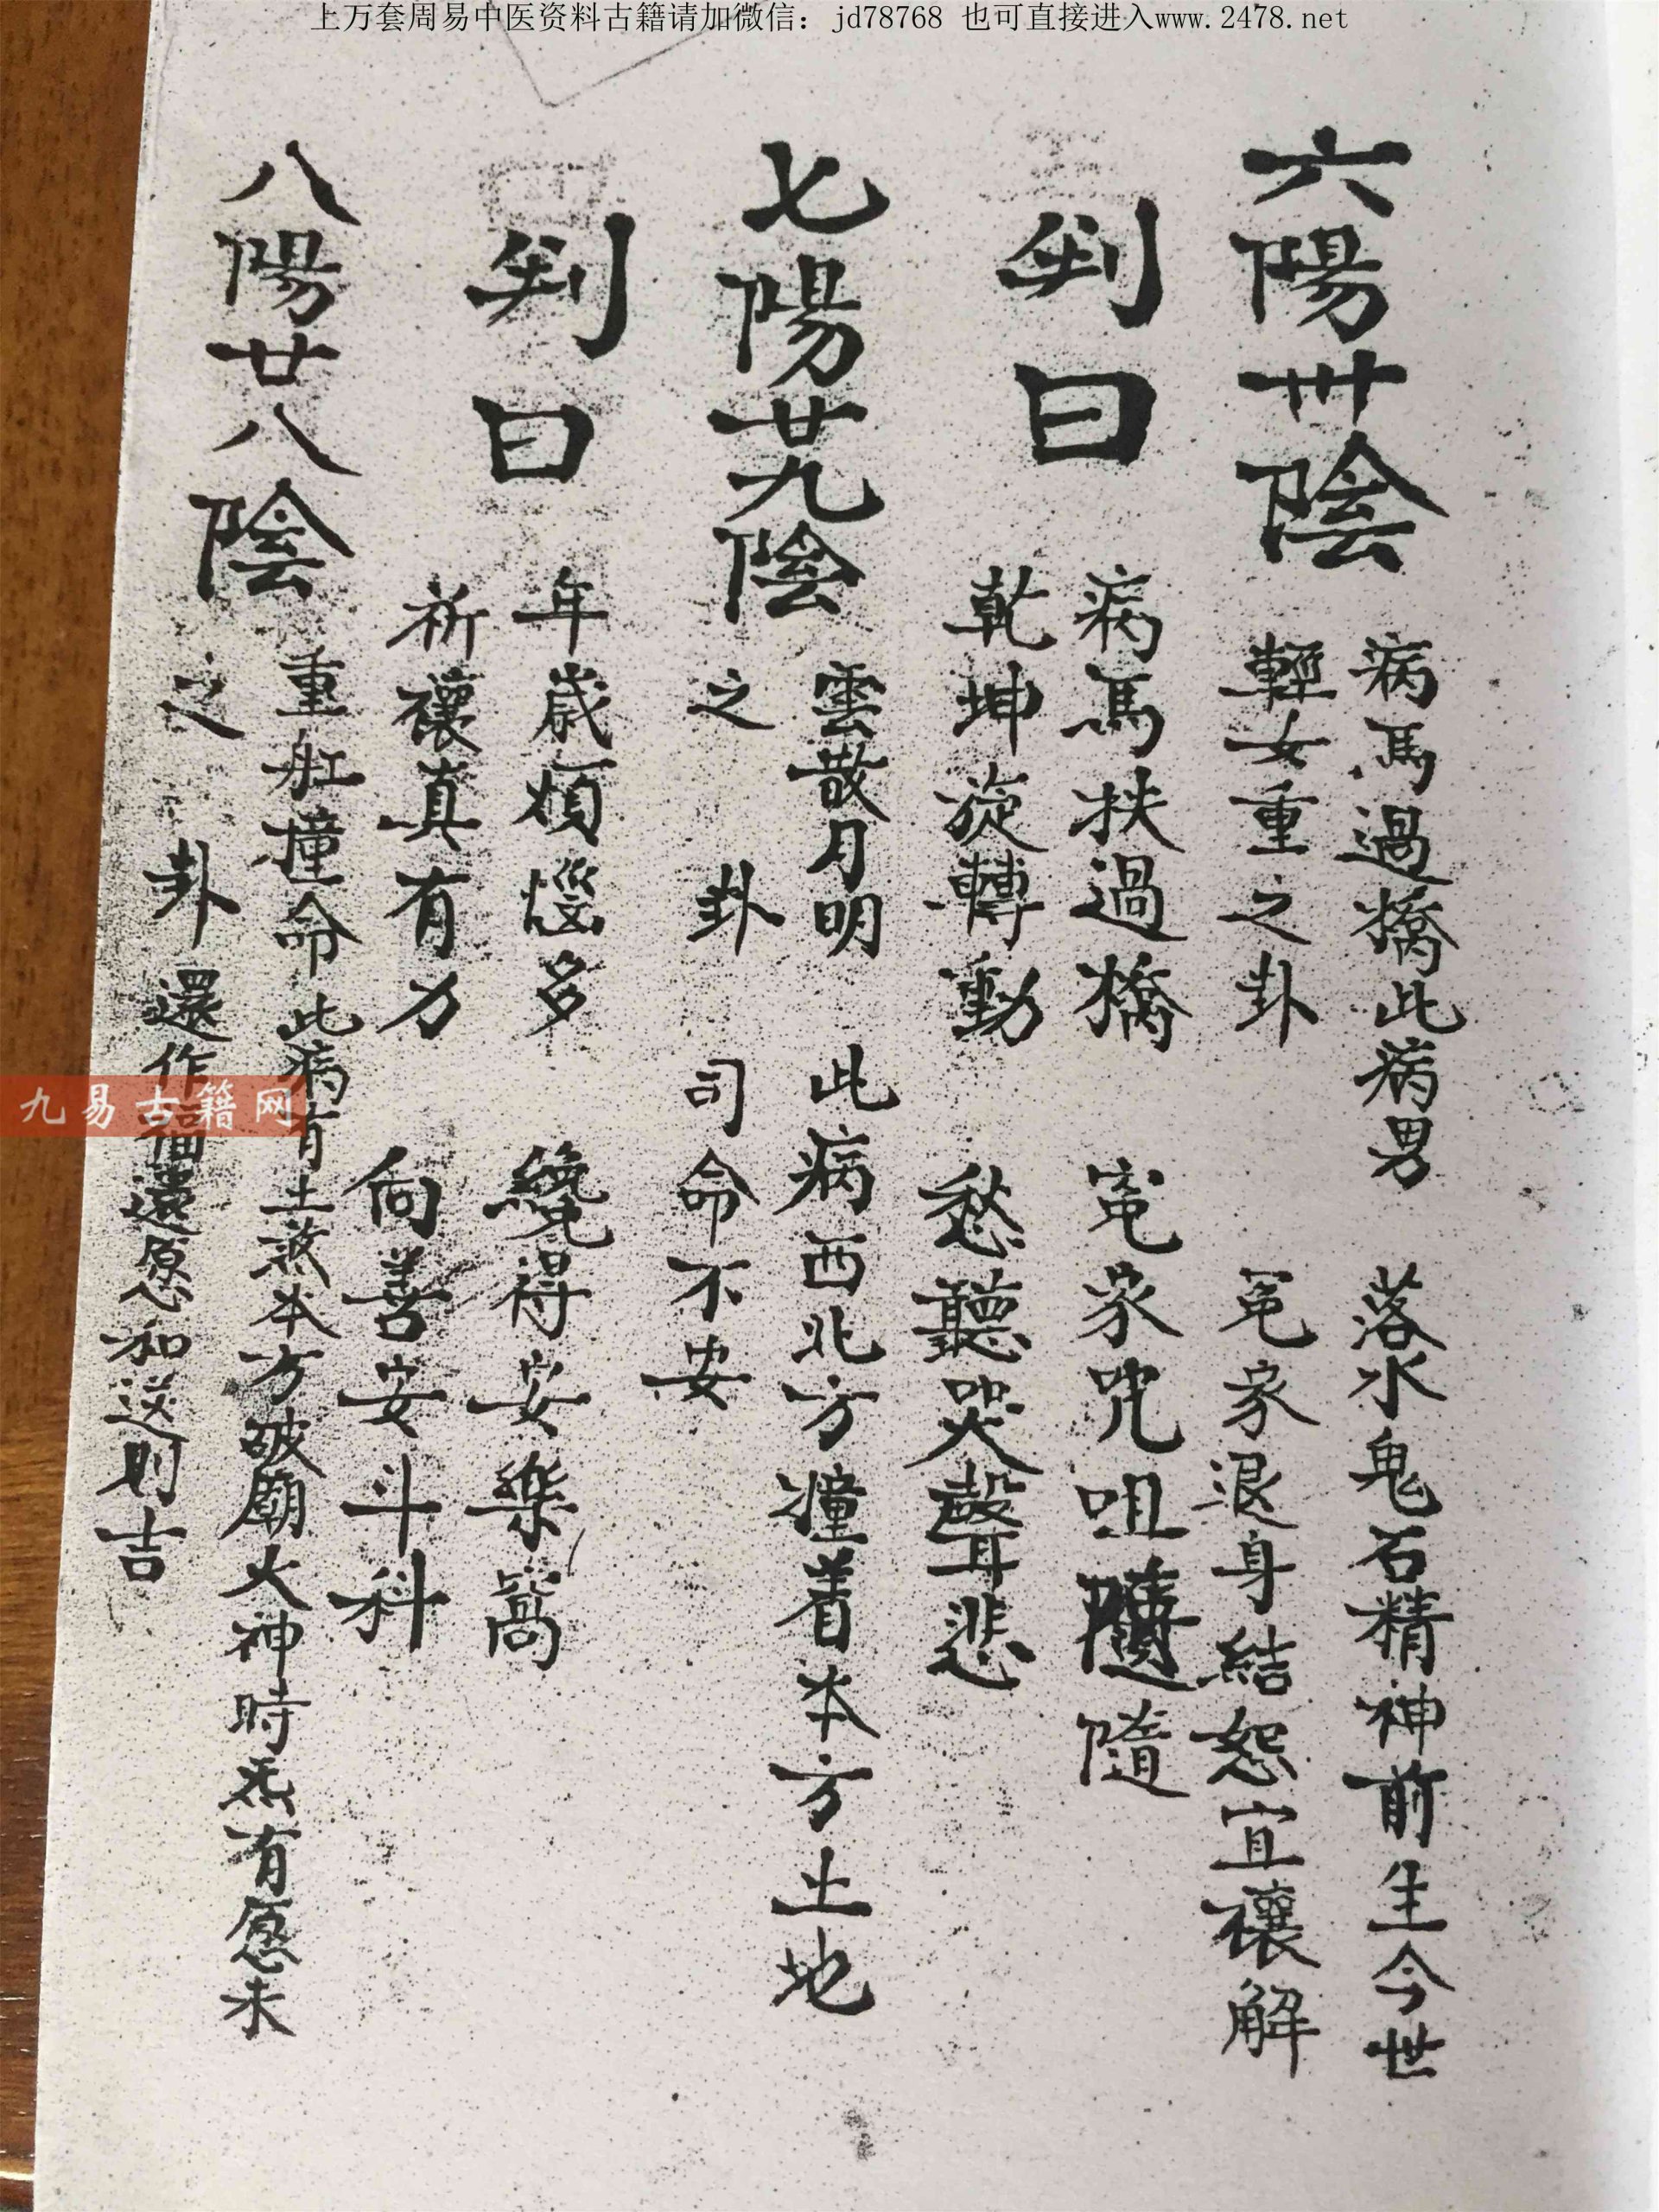 上万套周易中医资料古籍请加微信：jd78768 也可直接进入www.2478.net
六陽卅陰
病馬過橋此病男 落水鬼石精神前生今世
輕女重之卦 冤家退身結恕宜禳解
判曰
病馬扶過橋 冤家咒咀隨隨
乾坤旋轉動 愁聽哭聲悲
七陽廿九陰
雲散月明 此病西北方撞着本方土地
之卦 司命不安
判曰
年歲煩惱多 纔得安樂窩
祈禳真有力 向善安斗科
八陽廿八陰
重舡撞命 此病有土煞本方破廟火神時死有愿未
之卦 還作福還愿和送則吉
九易古籍网